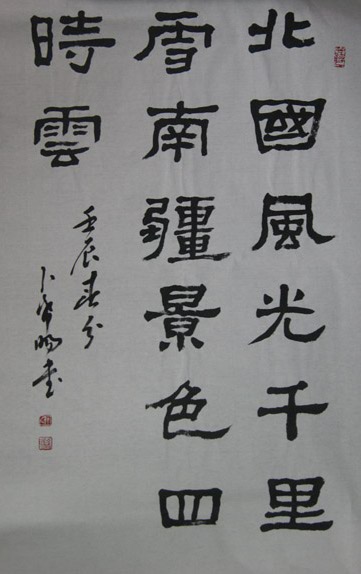 北國風光千里
雪南疆景色四
時雲
壬辰春分
卜
書